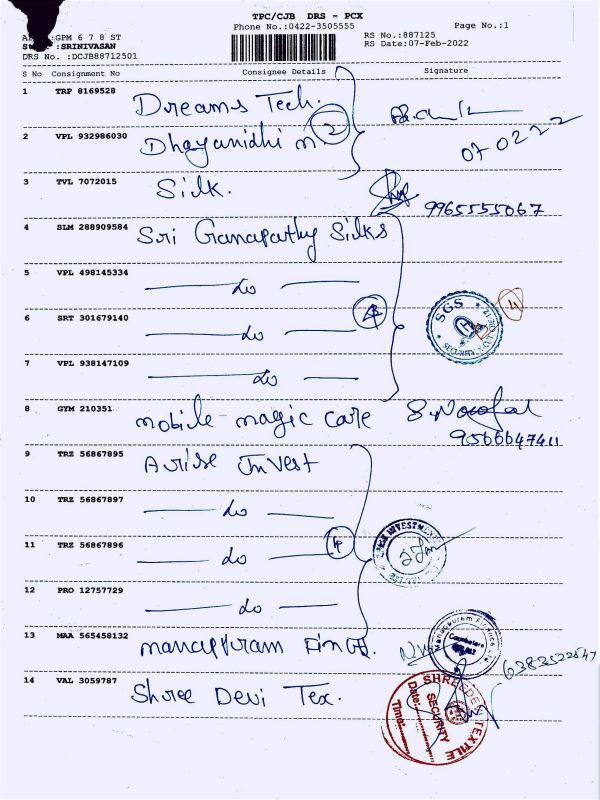 TPC/CJB DRS - PCX
Phone No.:0422-3505555
Page No.:1
:GPM 6 7 8 ST
:SRINIVASAN
DRS No. :DCJB88712501
RS No.:887125
RS Date:07-Feb-2022
S No Consignment No Consignee Details Signature
1 TRP 8169528 Dreams Tech.
2 VPL 932986030 Dhayanidhi m 2
07 02 22
3 TVL 7072015 Silk.
9965555067
4 SLM 288909584 Sri Ganapathy Silks
5 VPL 498145334 do
SGS
4
6 SRT 301679140 do
7 VPL 938147109 do
8 GYM 210351 mobile magic care
9566647411
9 TRZ 56867895 Arise Invest
10 TRZ 56867897 do
11 TRZ 56867896 do
INVESTMENT
12 PRO 12757729 do
13 MAA 565458132 manappuram
Coimbatore
14 VAL 3059787 Shree Devi Tex.
SHREEDEVI TEXTILE
SECURITY
Date:
Time: